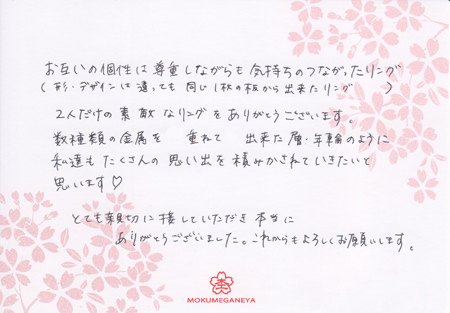 お互いの個性は尊重しながらも気持ちのつながったリング
(形・デザインは違っても同じ1枚の板から出来たリング)
2人だけの素敵なリングをありがとうございます。
数種類の金属を重ねて出来た層・年輪のように
私達もたくさんの思い出を積みかさねていきたいと
思います♡
とても親切に接していただき本当に
ありがとうございました。これからもよろしくお願いします。
MOKUMEGANEYA